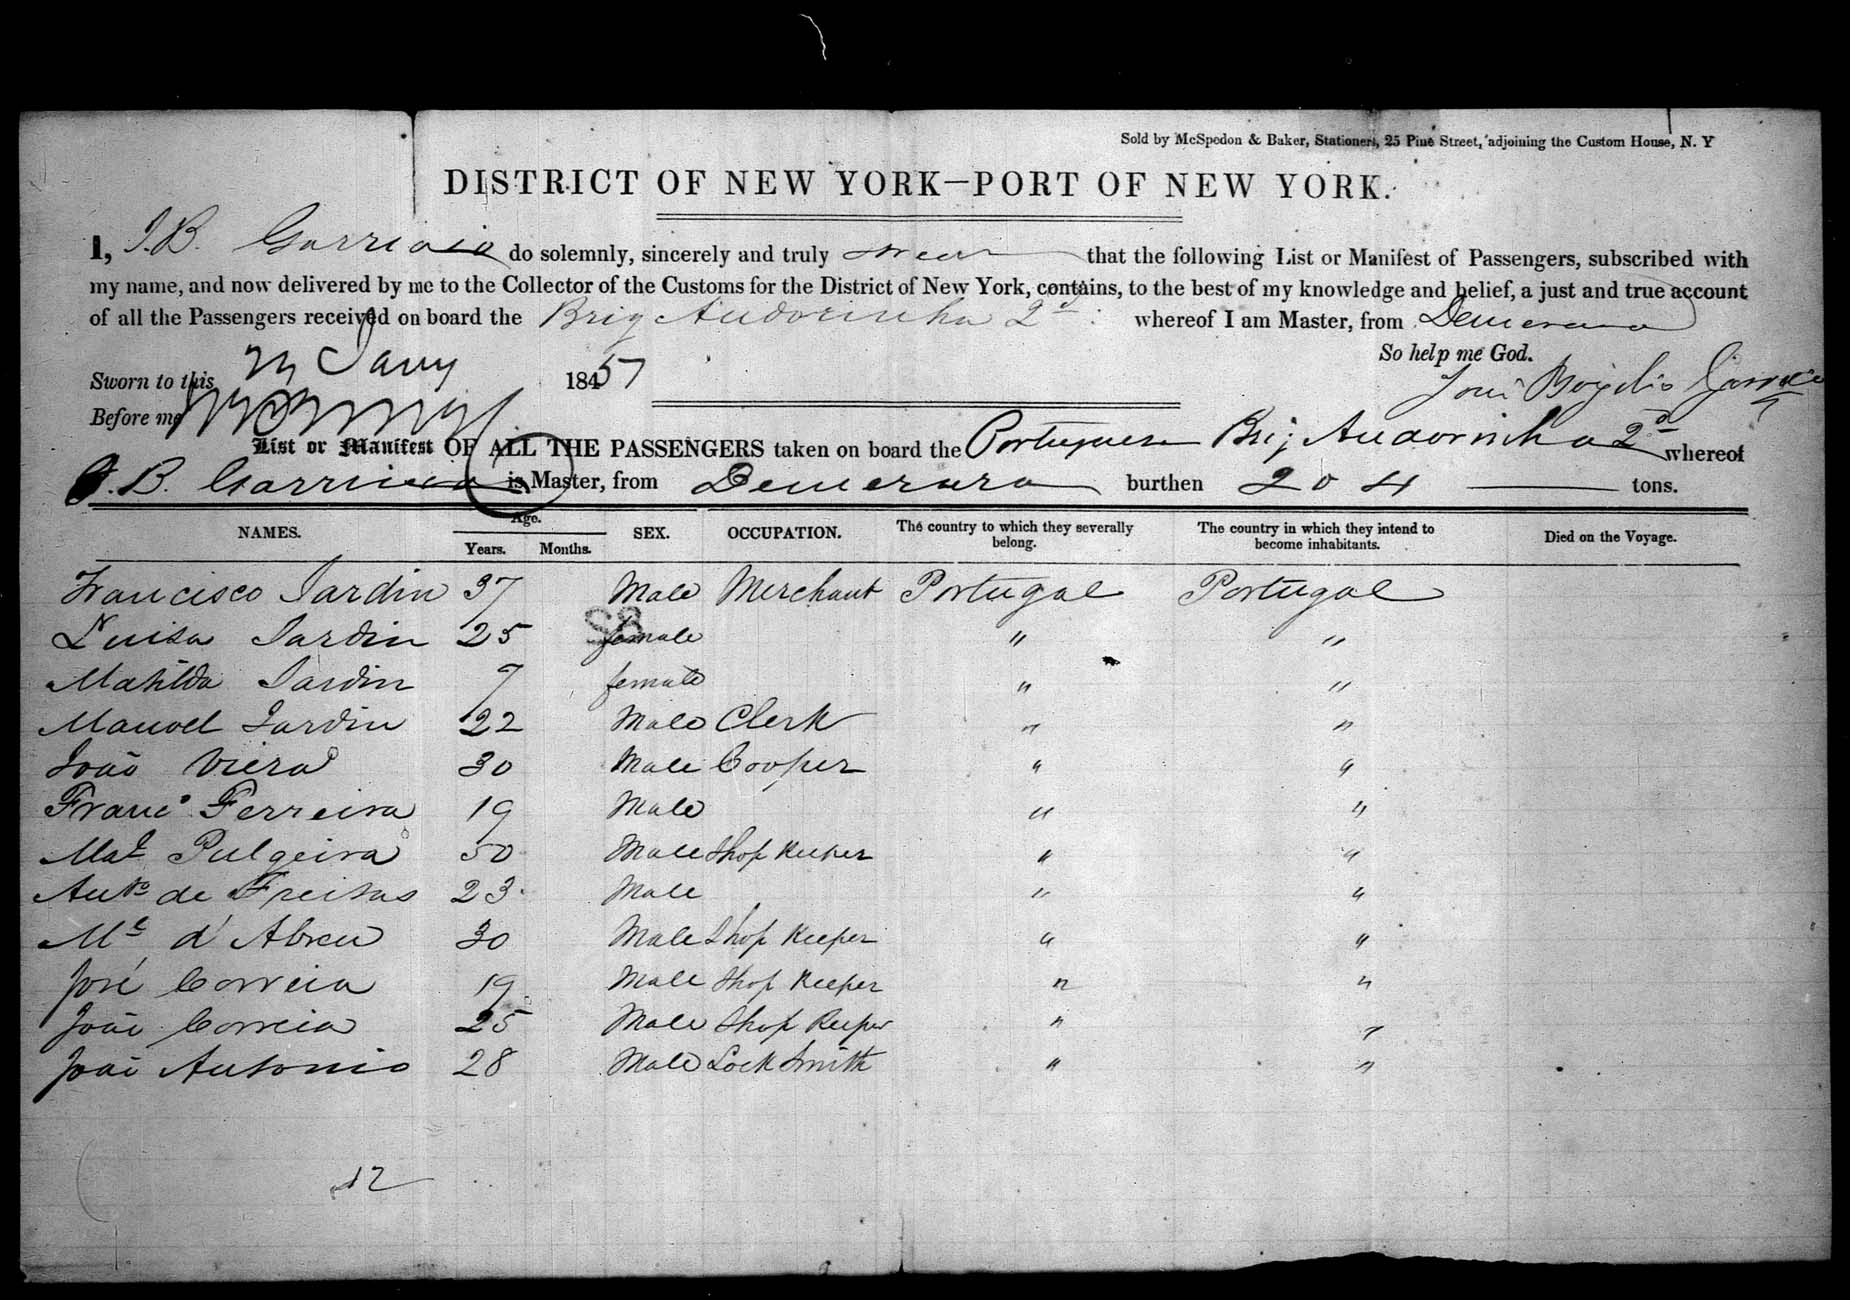 Sold by McSpedon & Baker, Stationers, 25 Pine Street, adjoining the Custom House, N. Y
DISTRICT OF NEW YORK—PORT OF NEW YORK.
I, J. B. do solemnly, sincerely and truly swear that the following List or Manifest of Passengers, subscribed with
my name, and now delivered by me to the Collector of the Customs for the District of New York, contains, to the best of my knowledge and belief, a just and true account
of all the Passengers received on board the Brig Andorinha 2d. whereof I am Master, from Demerara
So help me God.
Sworn to this Jany 1845
Before me
List or Manifest OF ALL THE PASSENGERS taken on board the Portuguese Brig Andorinha 2d whereof
J. B. is Master, from Demerara burthen 204 tons.
NAMES. Age. Years. Months. SEX. OCCUPATION. The country to which they severally belong. The country in which they intend to become inhabitants. Died on the Voyage.
Francisco Jardin 37 Male Merchant Portugal Portugal
Luisa Jardin 25 female " "
Matilda Jardin 7 female " "
Manoel Jardin 22 Male Clerk " "
João Viera 30 Male Cooper " "
Franco Ferreira 19 Male " "
Mal Pulgeira 50 Male Shop Keeper " "
Anto de Freitas 23 Male " "
Ml d'Abreu 30 Male Shop Keeper " "
José Correia 19 Male Shop Keeper " "
João Correia 25 Male Shop Keeper " "
João Antonio 28 Male Lock Smith " "
12